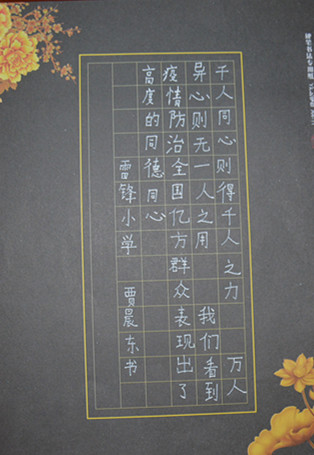 硬笔书法专用纸
千人同心则得千人之力 万人
异心则无一人之用 我们看到
疫情防治全国亿方群众表现出了
高度的同德同心
雷锋小学 贾晨东书